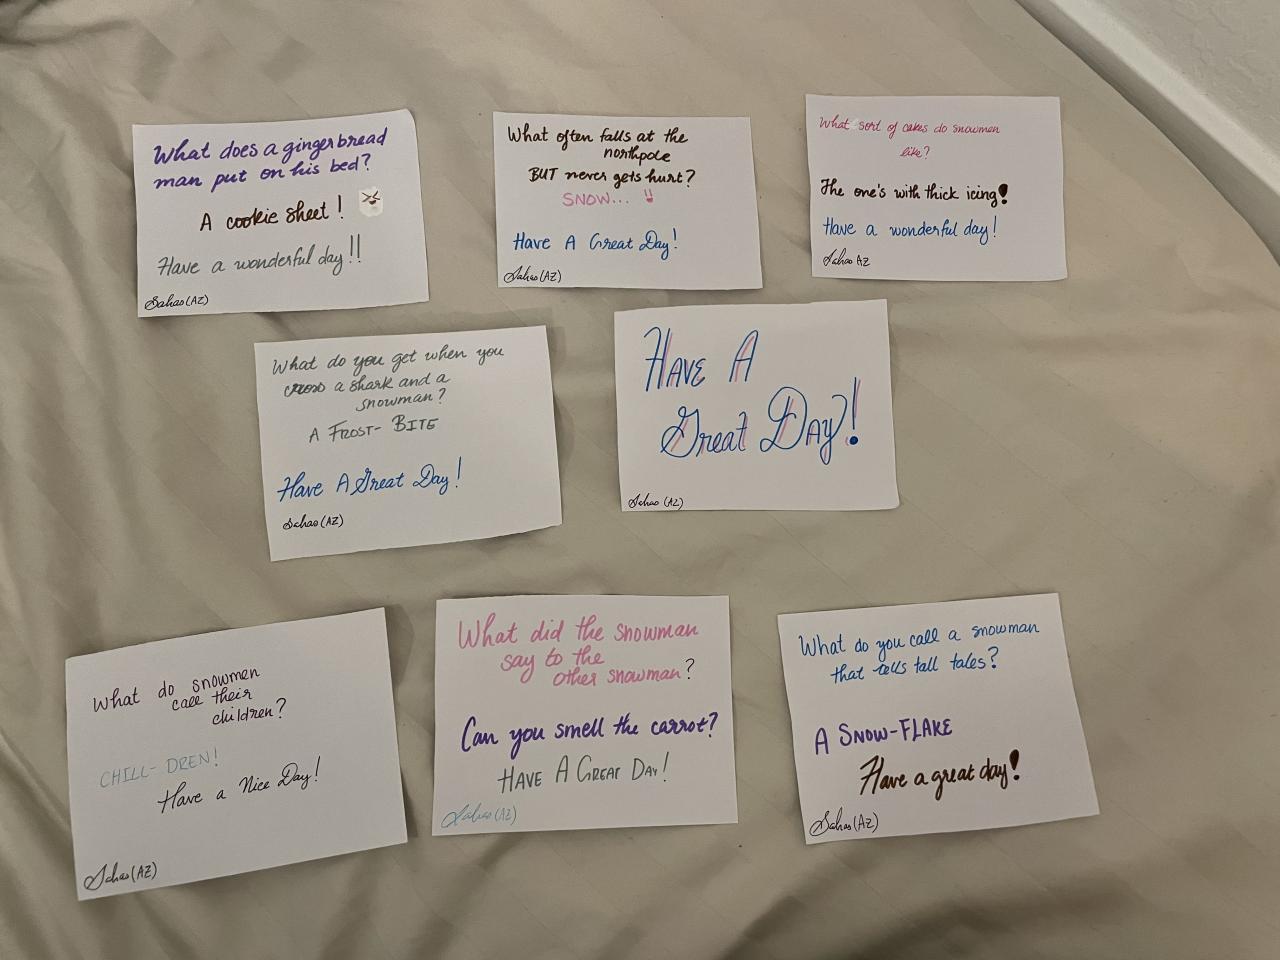 What does a gingerbread
man put on his bed?
A cookie sheet!
Have a wonderful day!!
Sahas (AZ)
What often falls at the
northpole
BUT never gets hurt?
SNOW... !!
Have A Great Day!
Sahas (AZ)
What sort of cakes do snowmen
like?
The one's with thick icing!
Have a wonderful day!
Sahas AZ
What do you get when you
cross a shark and a
snowman?
A FROST- BITE
Have A Great Day!
Sahas (AZ)
HAVE A
Great DAY!
Sahas (AZ)
What do snowmen
call their
children?
CHILL- DREN!
Have a Nice Day!
Sahas (AZ)
What did the snowman
say to the
other snowman?
Can you smell the carrot?
HAVE A GREAT DAY!
Sahas (AZ)
What do you call a snowman
that tells tall tales?
A SNOW-FLAKE
Have a great day!
Sahas (AZ)